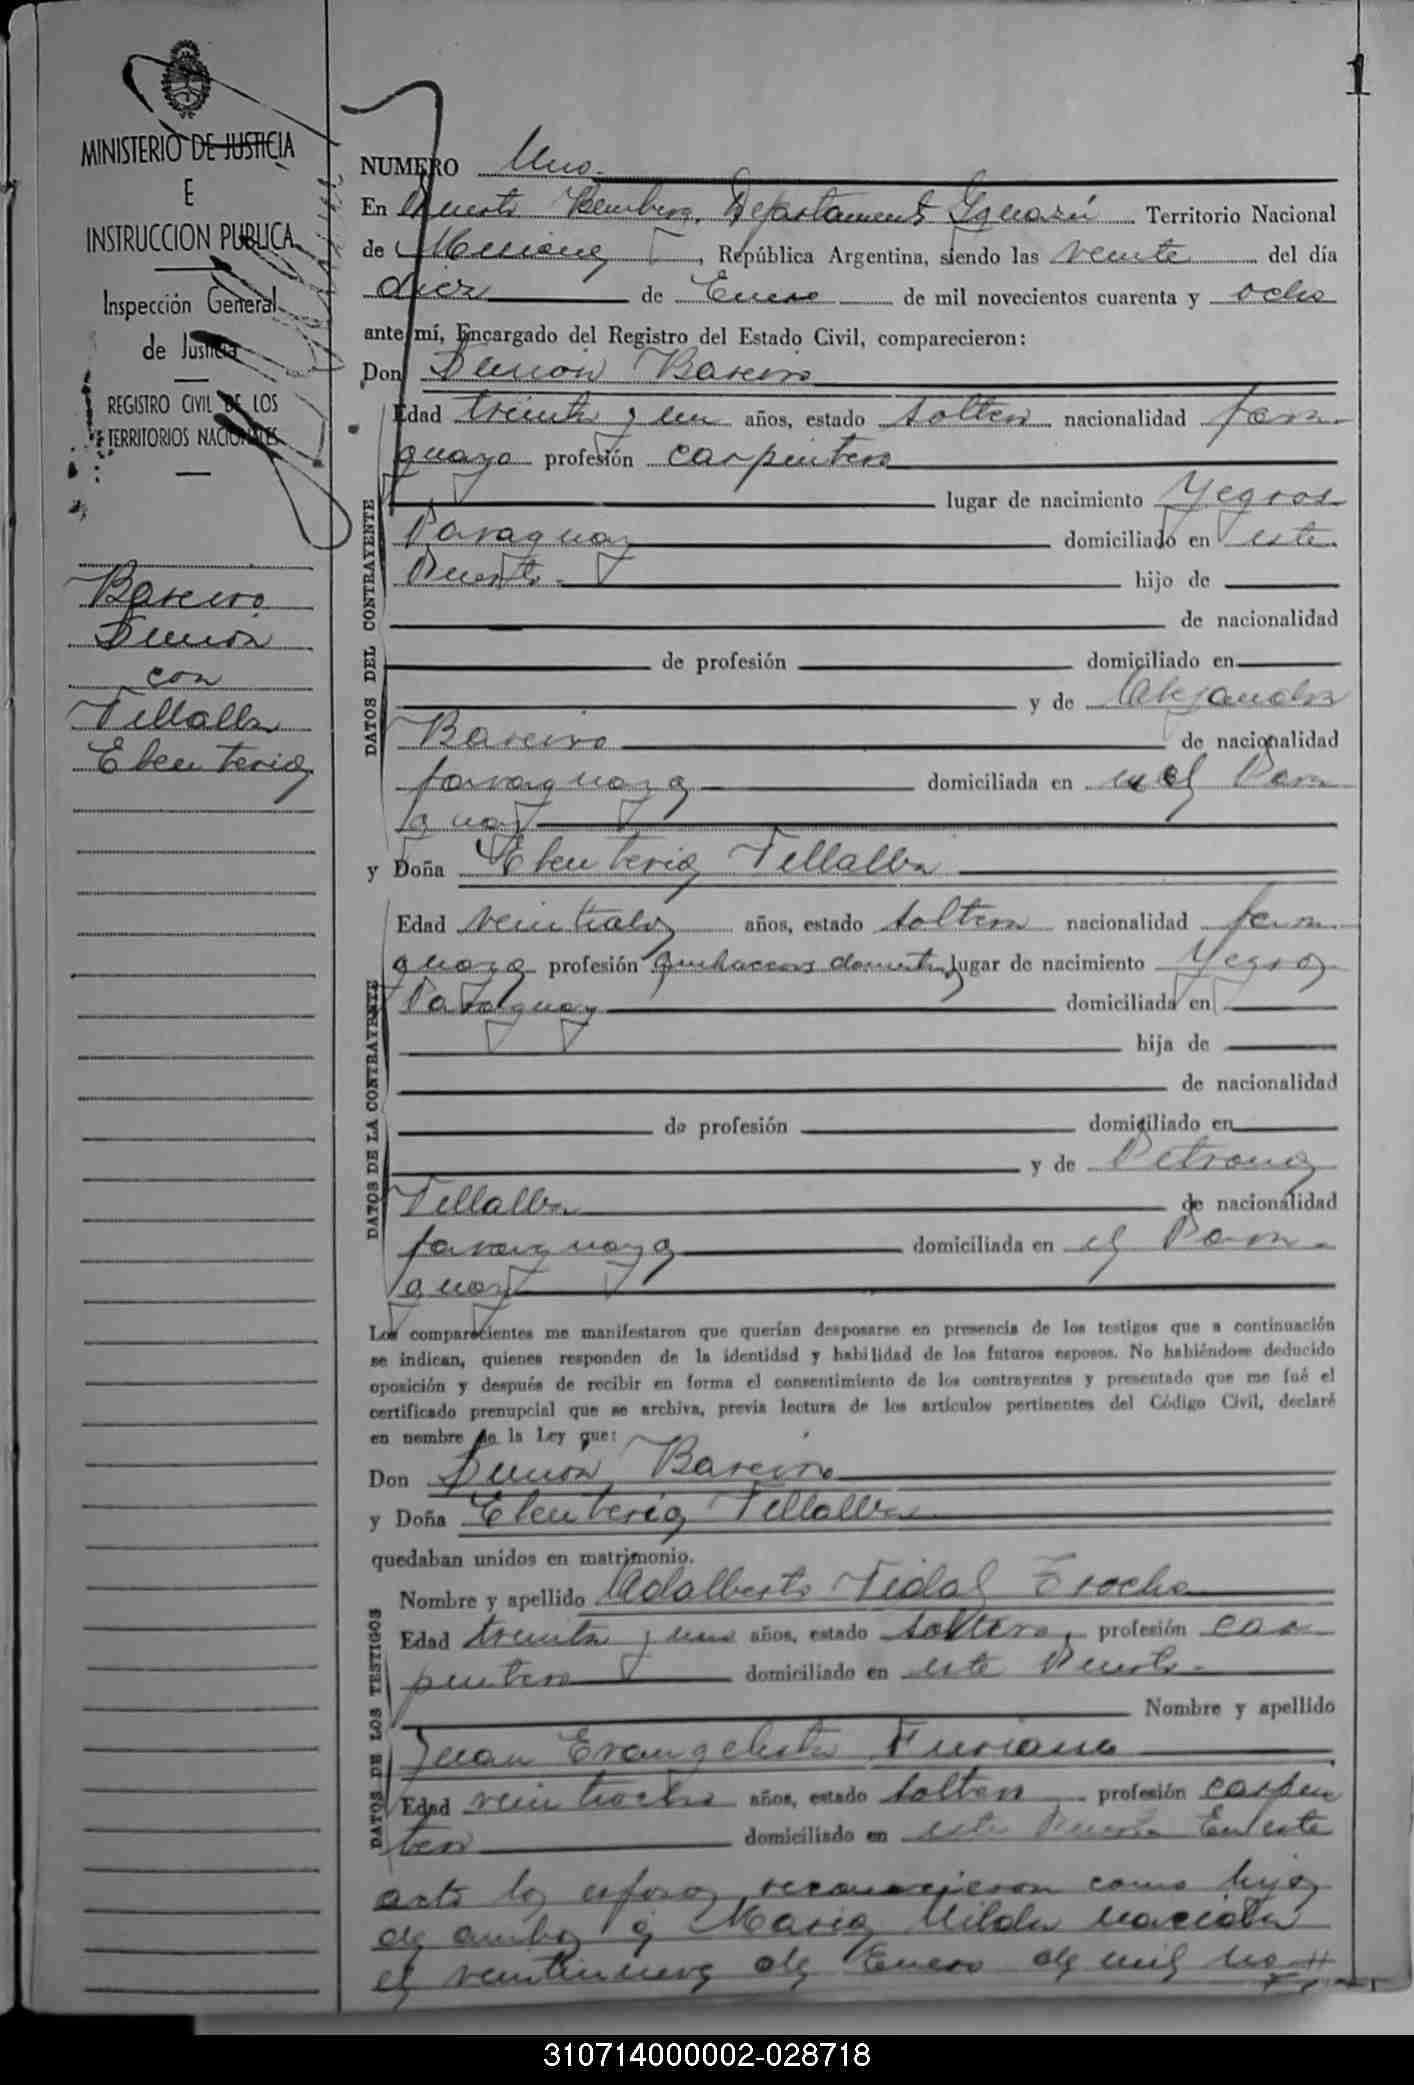 1
MINISTERIO DE JUSTICIA
E
INSTRUCCION PUBLICA
Inspección General
de Justicia
REGISTRO CIVIL DE LOS
TERRITORIOS NACIONALES
Bareiro
Simón
con
Villalba
Eleuteria
NUMERO Uno.
En Puerto Bemberg, Departamento Iguazú Territorio Nacional
de Misiones, República Argentina, siendo las veinte del día
diez de Enero de mil novecientos cuarenta y ocho
ante mí, Encargado del Registro del Estado Civil, comparecieron:
Don Simón Bareiro
DATOS DEL CONTRAYENTE
Edad treinta y un años, estado soltero nacionalidad para-
guaya profesión carpintero
lugar de nacimiento Yegros
Paraguay domiciliado en este
Puerto. hijo de
de nacionalidad
de profesión domiciliado en
y de Alejandra
Bareiro de nacionalidad
paraguaya domiciliada en el Para
guay
y Doña Eleuteria Villalba
DATOS DE LA CONTRAYENTE
Edad veintidos años, estado soltera nacionalidad para-
guaya profesión quehaceres domesticos lugar de nacimiento Yegros
Paraguay domiciliada en
hija de
de nacionalidad
de profesión domiciliado en
y de Petrona
Villalba de nacionalidad
paraguaya domiciliada en el Para-
guay
Los comparecientes me manifestaron que querían desposarse en presencia de los testigos que a continuación
se indican, quienes responden de la identidad y habilidad de los futuros esposos. No habiéndose deducido
oposición y después de recibir en forma el consentimiento de los contrayentes y presentado que me fué el
certificado prenupcial que se archiva, previa lectura de los artículos pertinentes del Código Civil, declaré
en nombre de la Ley que:
Don Simón Bareiro
y Doña Eleuteria Villalba
quedaban unidos en matrimonio.
DATOS DE LOS TESTIGOS
Nombre y apellido Adalberto Vidal Trocha
Edad treinta y uno años, estado soltero, profesión car
pintero domiciliado en este Puerto.
Nombre y apellido
Juan Evangelista
Edad veintiocho años, estado soltero profesión carpin
tero domiciliado en este Puerto En este
acto los esposos reconocieron como hija
de ambos a Maria Nilda nacida
el veintinueve de Enero de mil no-
310714000002-028718